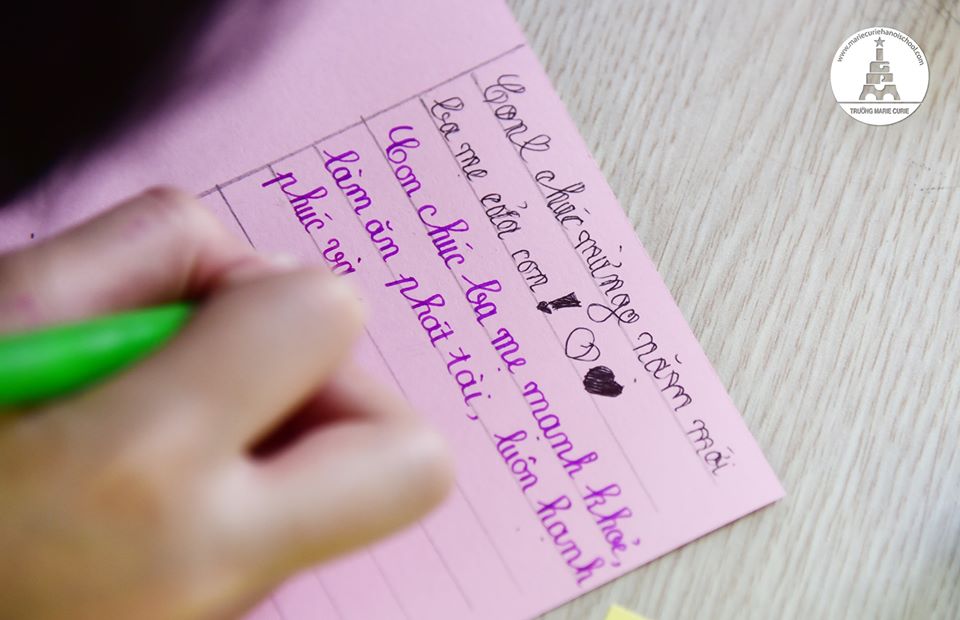 Con chúc mừng năm mới
ba mẹ của con!
Con chúc ba mẹ mạnh khỏe,
làm ăn phát tài, luôn hạnh
phúc và
www.mariecuriehanoischool.com
TRƯỜNG MARIE CURIE